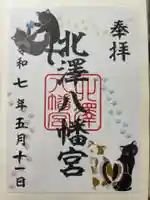 奉拝
北澤八幡宮
令和七年五月十一日
北澤八幡宮